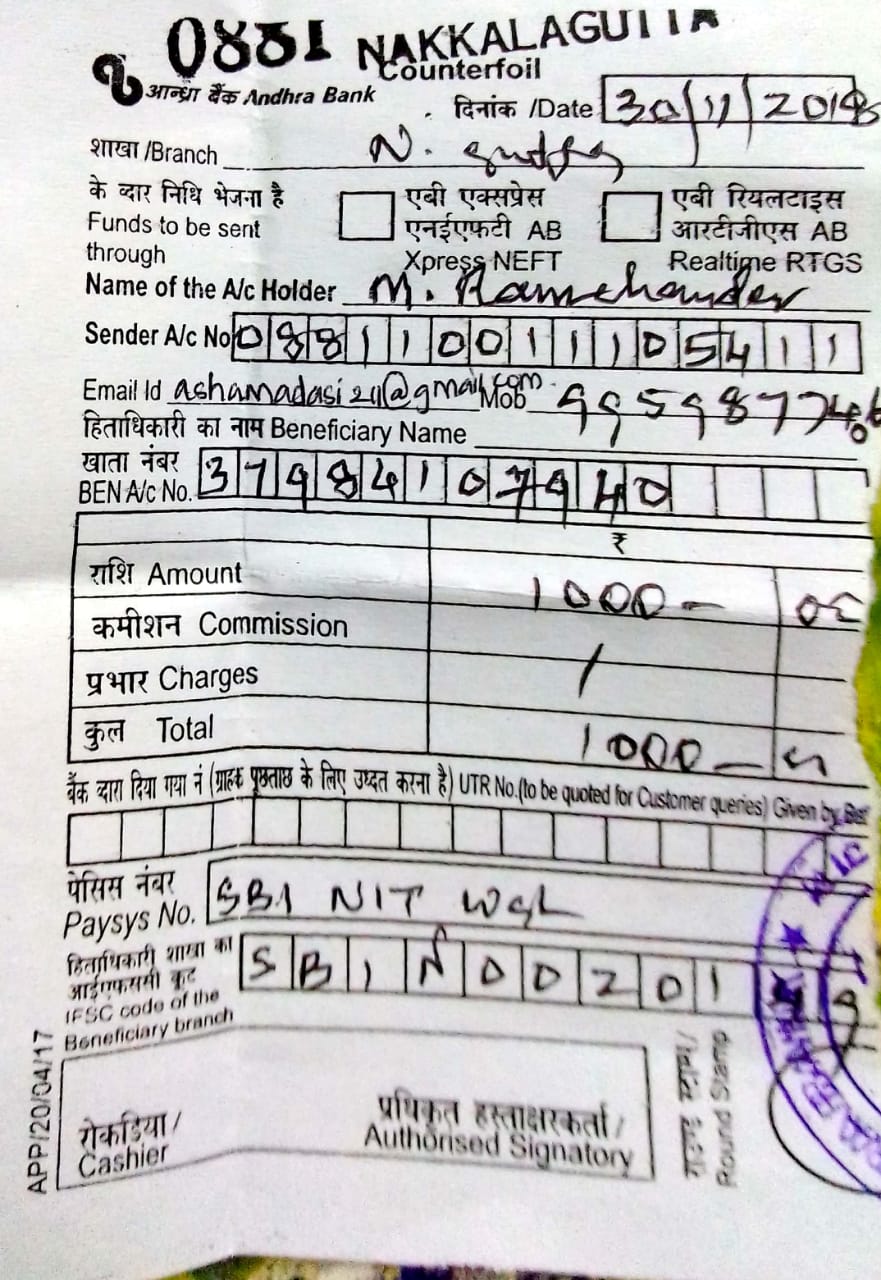 0881 NAKKALAGUTTA
Counterfoil
आन्ध्रा बैंक Andhra Bank
दिनांक /Date 30/11/2018
शाखा /Branch N. gutta
के व्दार निधि भेजना है
Funds to be sent
through
एबी एक्सप्रेस
एनईएफटी AB
Xpress NEFT
एबी रियलटाइस
आरटीजीएस AB
Realtime RTGS
Name of the A/c Holder M. Ramchander
Sender A/c No 0881 1001 1105411
Email Id ashamadasi211@gmail.com Mob
हिताधिकारी का नाम Beneficiary Name
खाता नंबर
BEN A/c No. 37984107940
₹
राशि Amount 1000 – 00
कमीशन Commission
प्रभार Charges /
कुल Total 1000 –
बैंक व्दारा दिया गया नं (ग्राहक पूछताछ के लिए उध्दत करना है) UTR No.(to be quoted for Customer queries) Given by
पेसिस नंबर
Paysys No. SBI NIT WGL
हिताधिकारी शाखा का
आईएफससी कूट
IFSC code of the
Beneficiary branch
SBIN00201
रोकडिया /
Cashier
प्रधिकृत हस्ताक्षरकर्ता /
Authorised Signatory
राउण्ड स्टाम्प/
Round Stamp
APP/20/04/17